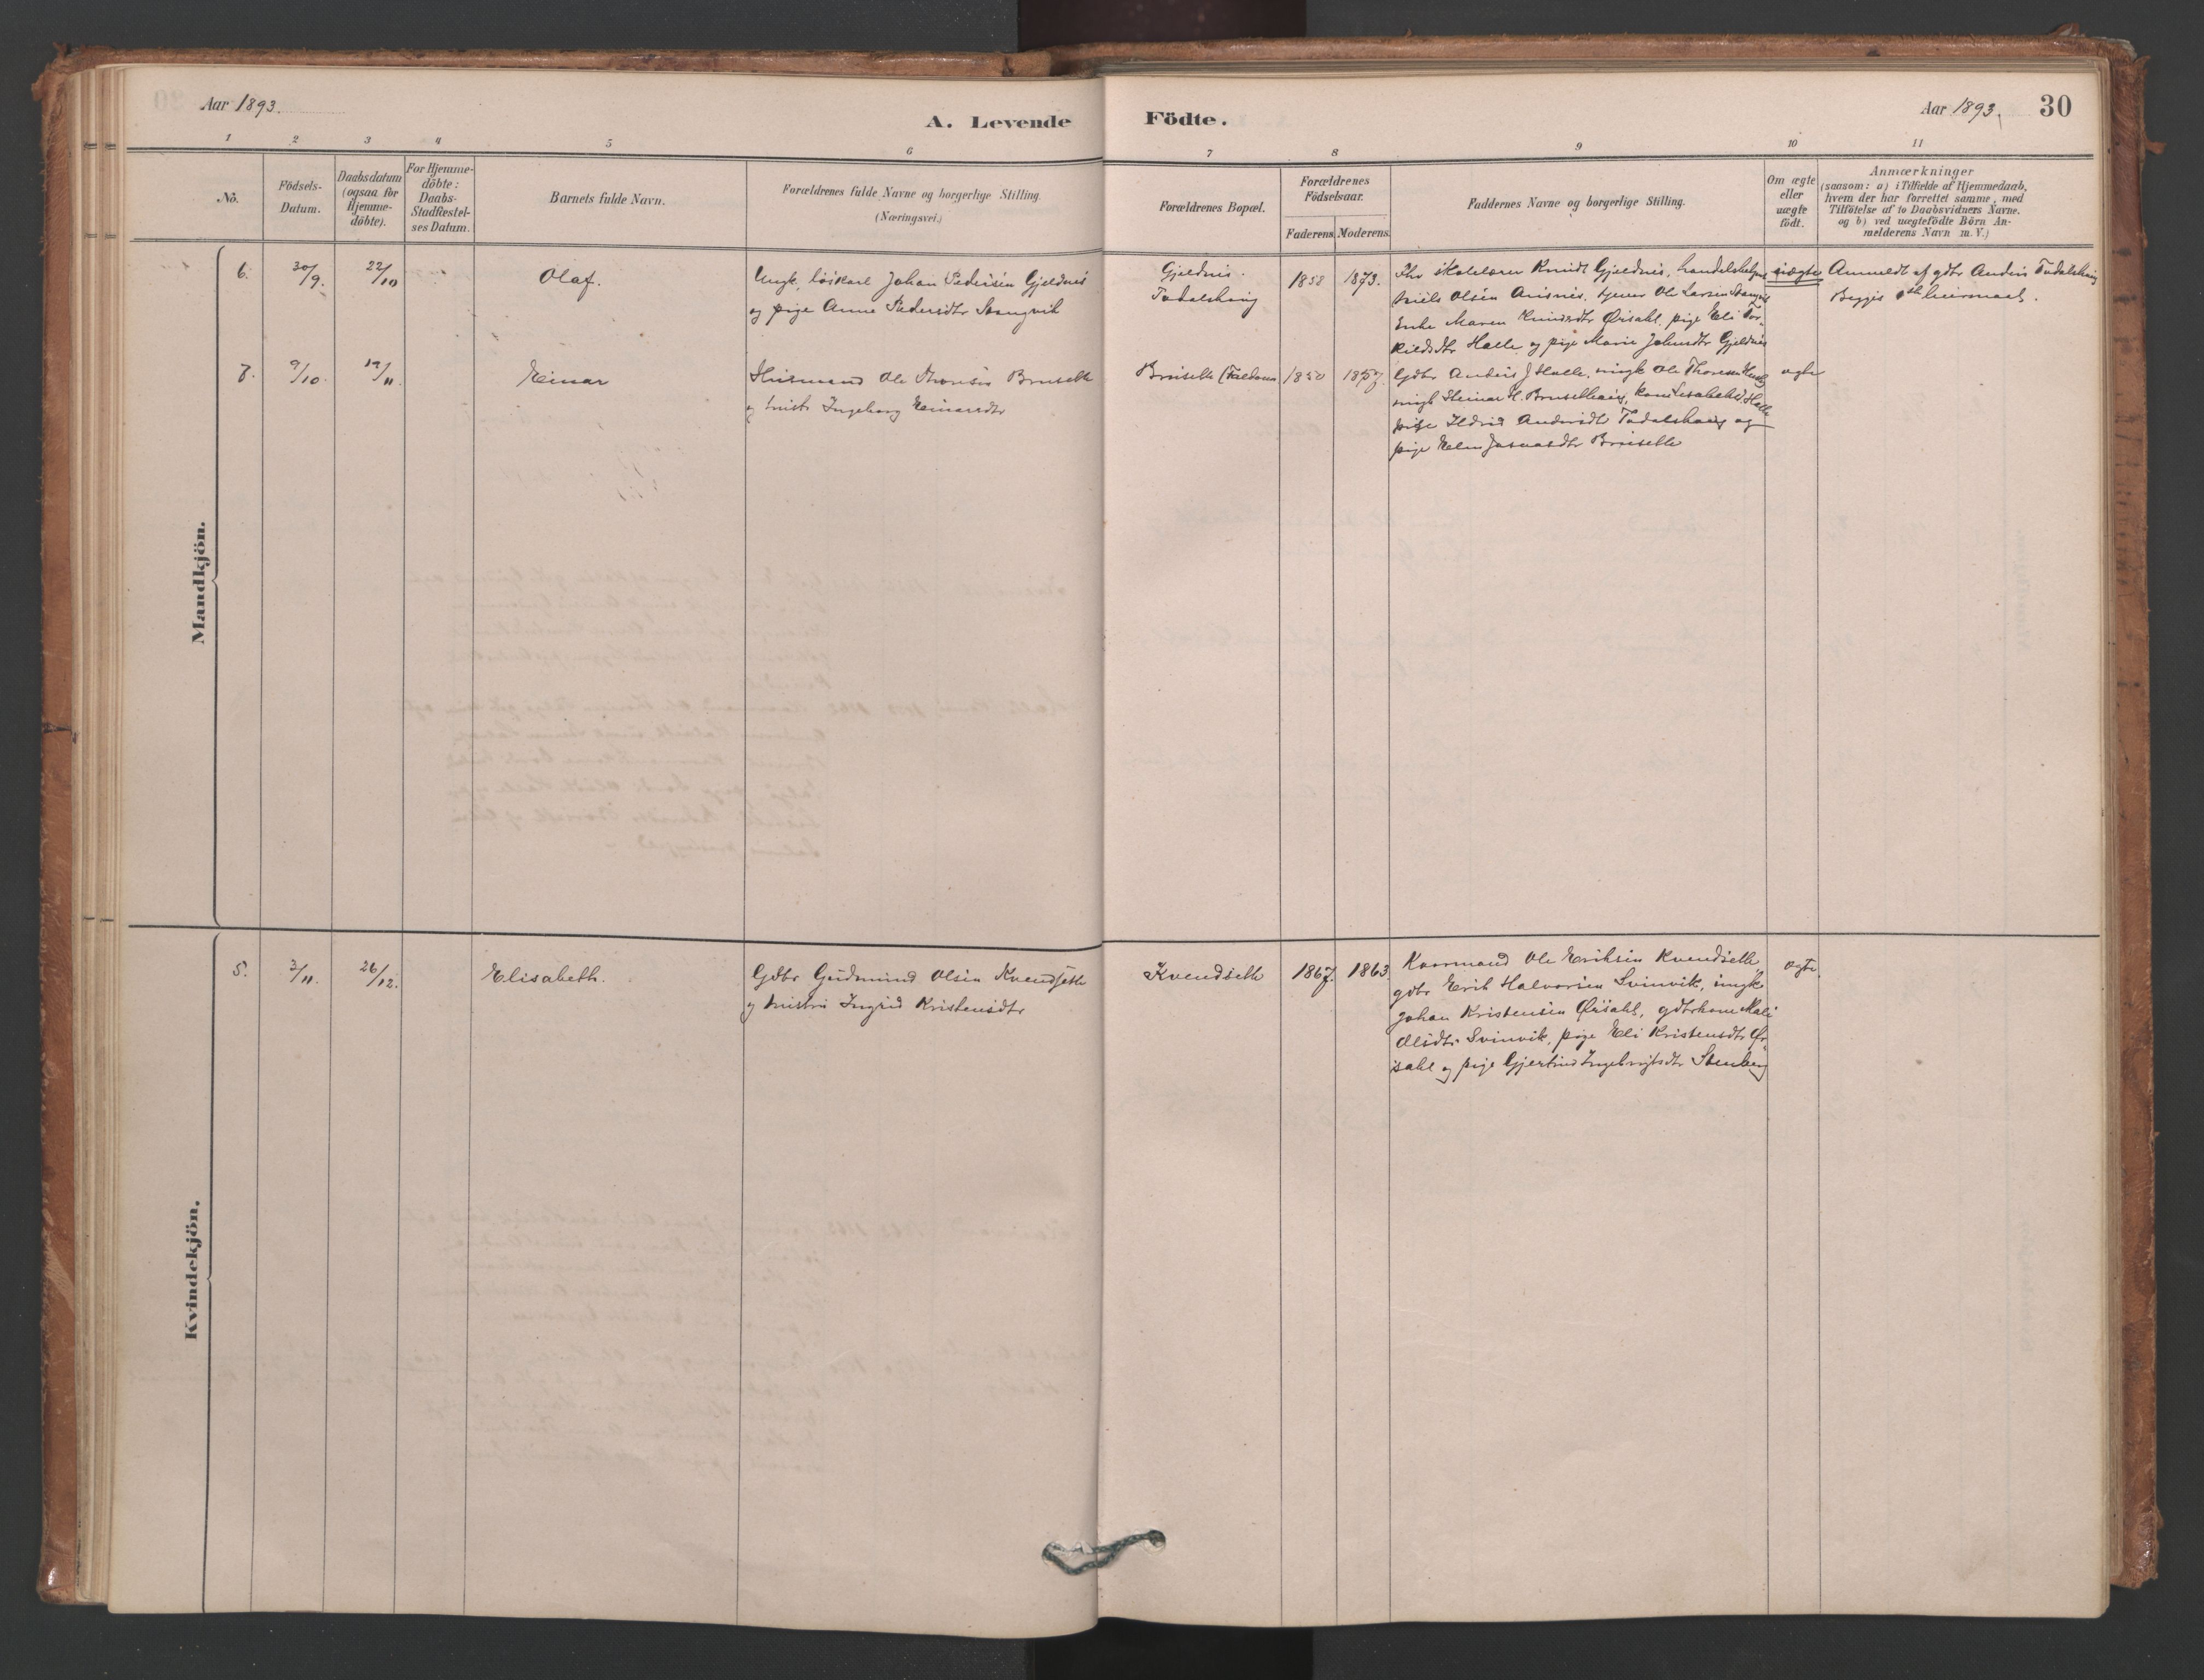 Aar 1893.
A. Levende
Födte.
Aar 1893.
30
1 2 3 4 5 6 7 8 9 10 11
No.
Födsels-
Datum.
Daabsdatum
(ogsaa for
Hjemme-
döbte).
For Hjemme-
döbte:
Daabs-
Stadfæstel-
ses Datum.
Barnets fulde Navn.
Forældrenes fulde Navne og borgerlige Stilling.
(Næringsvei.)
Forældrenes Bopæl.
Forældrenes
Födselsaar.
Faderens Moderens
Faddernes Navne og borgerlige Stilling.
Om ægte
eller
uægte
födt.
Anmærkninger
(saasom: a) i Tilfælde af Hjemmedaab,
hvem der har forrettet samme, med
Tilföielse af to Daabsvidners Navne.
og b) ved uægtefödte Börn An-
melderens Navn m. V.)
Mandkjön.
6.
30/9.
22/10
Olaf.
Ungk. löskarl Johan Pedersen Gjeldnes
og pige Anne Pedersdtr Stangvik
Gjeldnes.
Todalshaug
1858
1873.
Fhv skolelærer Knudt Gjeldnes, handelsbetjent
Niels Olsen Arisnes, tjener Ole Larsen Stangvik
Enke Maren Knudsdtr Ørsahl, pige Eli Tor-
kildsdtr Halle og pige Marie Johnsdtr Gjeldnes
uægte
Anmeldt af gdbr Anders Todalshaug
Begges 1ste leiermaal.
7.
9/10.
12/11.
Einar
Husmand Ole Thoresen Bruseth
og hustr Ingeborg Einarsdtr
Bruseth
1850
1857.
Gdbr Anders J Halle, ungk Ole Thoresen
ungk Steinar H. Brusethaug, kone Lisabeth Halle
pige Ildrid Andersdtr Todalshaug og
pige Elen Jonasdtr Bruseth
ægte
Kvindekjön.
5.
3/11.
26/12.
Elisabeth.
Gdbr Gudmund Olsen Kvendseth
og hustru Ingrid Kristensdtr
Kvendseth
1867.
1863
Kaarmand Ole Eriksen Kvendseth
gdbr Erik Halvorsen Svinvik, ungk
Johan Kristensen Ørsahl, gdbrkone Mali
Olsdtr Svinvik, pige Eli Kristensdtr Ør-
sahl og pige Gjertrud Ingebrigtsdtr Stenberg
ægte.